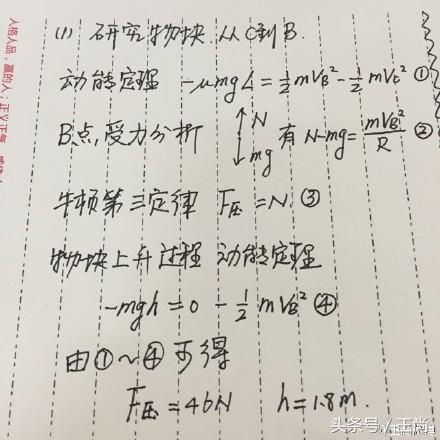 (1) 研究物块从C到B.
动能定理 -μmgL=½mVB²-½mVc² ①
B点,受力分析 ↑N ↓mg 有 N-mg=mVB²/R ②
牛顿第三定律 F压=N ③
物块上升过程 动能定理
-mgh=0-½mVB² ④
由①~④可得
F压=46N h=1.8m.
头条号/王尚